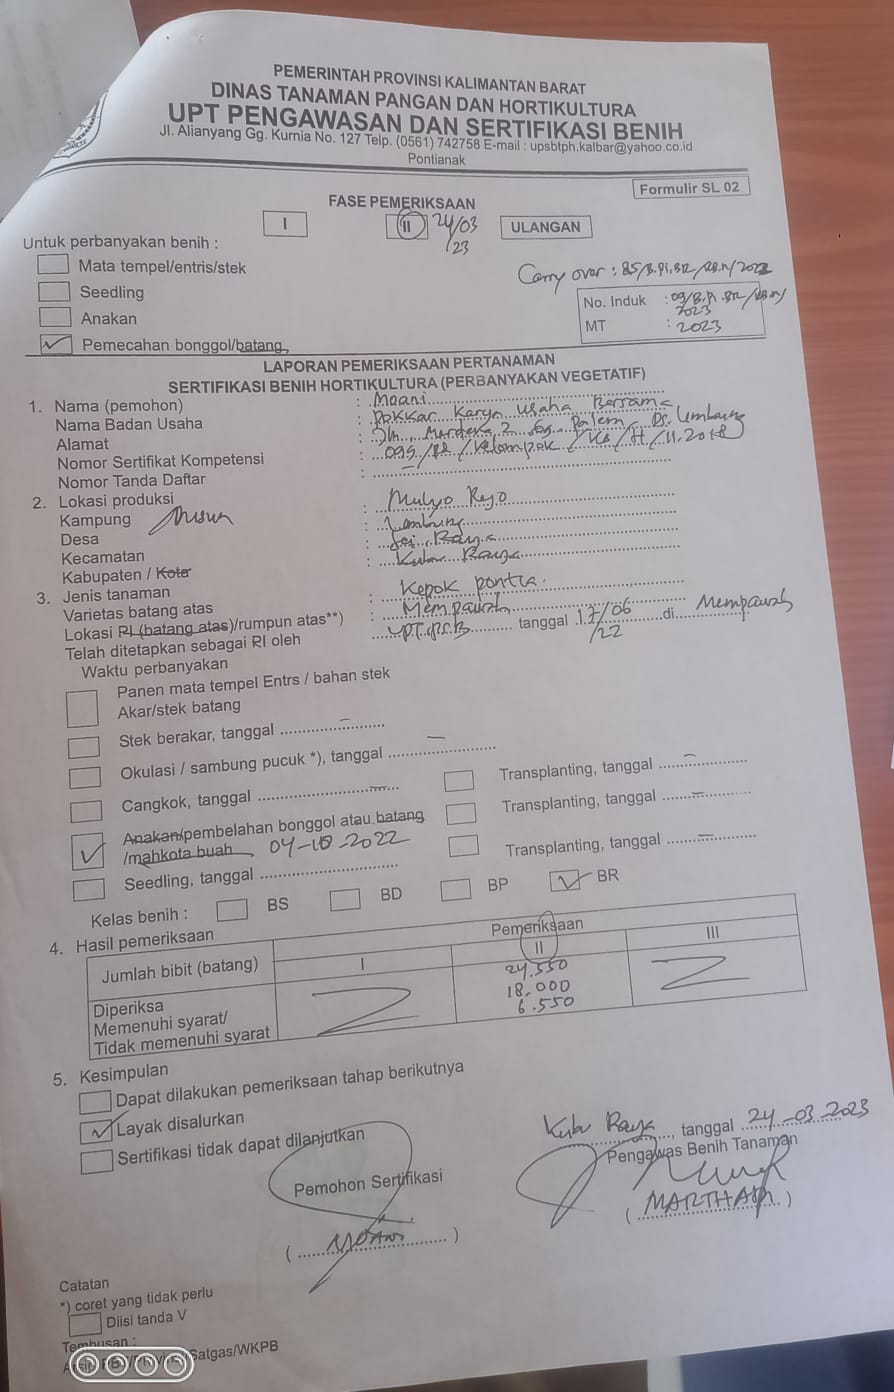 PEMERINTAH PROVINSI KALIMANTAN BARAT
DINAS TANAMAN PANGAN DAN HORTIKULTURA
UPT PENGAWASAN DAN SERTIFIKASI BENIH
Jl. Alianyang Gg. Kurnia No. 127 Telp. (0561) 742758 E-mail : upsbtph.kalbar@yahoo.co.id
Pontianak
Formulir SL 02
FASE PEMERIKSAAN
I II 24/03/23 ULANGAN
Untuk perbanyakan benih :
Mata tempel/entris/stek
Carry over :
Seedling
No. Induk :
2023
Anakan
MT : 2023
Pemecahan bonggol/batang
LAPORAN PEMERIKSAAN PERTANAMAN
SERTIFIKASI BENIH HORTIKULTURA (PERBANYAKAN VEGETATIF)
1. Nama (pemohon) : Moani
Nama Badan Usaha : Pokkar Karya Usaha Bersama
Alamat : Merdeka 2 Gg. Palem
Nomor Sertifikat Kompetensi :
Nomor Tanda Daftar : –
2. Lokasi produksi
Kampung : Mulyo Rejo
Desa :
Kecamatan : Sei. Raya
Kabupaten / Kota : Kubu Raya
3. Jenis tanaman
Varietas batang atas : Kepok pontia
Lokasi RI (batang atas)/rumpun atas**) : Mempawah
Telah ditetapkan sebagai RI oleh tanggal 17/06/22 di Mempawah
Waktu perbanyakan
Panen mata tempel Entrs / bahan stek
Akar/stek batang
Stek berakar, tanggal –
Okulasi / sambung pucuk *), tanggal –
Transplanting, tanggal –
Cangkok, tanggal –
Transplanting, tanggal –
Anakan/pembelahan bonggol atau batang
/mahkota buah, 04-10-2022
Transplanting, tanggal –
Seedling, tanggal
Kelas benih : BS BD BP BR
4. Hasil pemeriksaan
Pemeriksaan
Jumlah bibit (batang) I II III
Diperiksa 24.550
Memenuhi syarat/ 18.000
Tidak memenuhi syarat 6.550
5. Kesimpulan
Dapat dilakukan pemeriksaan tahap berikutnya
Layak disalurkan
Sertifikasi tidak dapat dilanjutkan
Kubu Raya, tanggal 24-03-2023
Pemohon Sertifikasi
Pengawas Benih Tanaman
(MOANI)
Catatan
*) coret yang tidak perlu
Diisi tanda V
Tembusan :
Satgas/WKPB